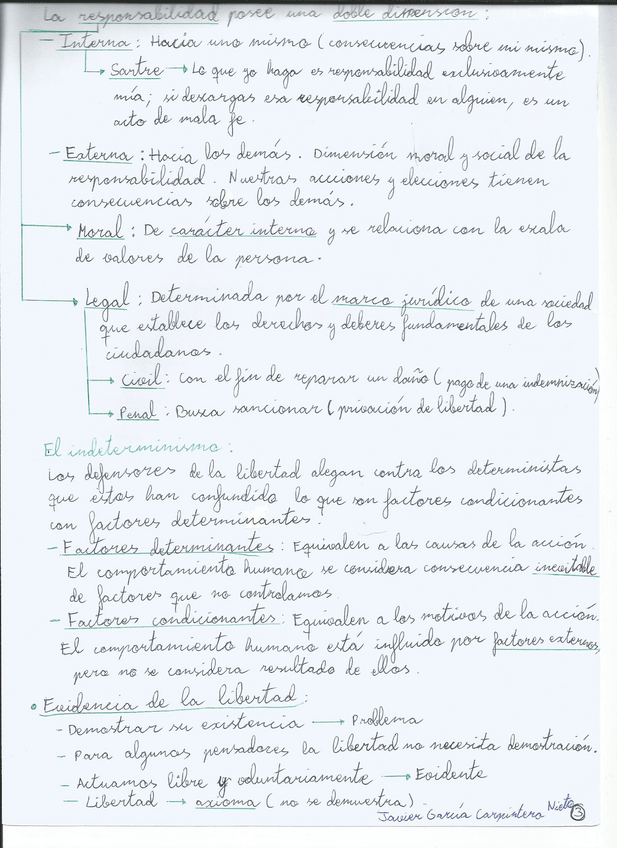 La responsabilidad posee una doble dimensión:
- Interna: Hacia uno mismo (consecuencias sobre mi mismo).
Sartre → Lo que yo haga es responsabilidad exclusivamente
mía; si descargas esa responsabilidad en alguien, es un
acto de mala fe.
- Externa: Hacia los demás. Dimensión moral y social de la
responsabilidad. Nuestras acciones y elecciones tienen
consecuencias sobre los demás.
Moral: De carácter interno y se relaciona con la escala
de valores de la persona.
Legal: Determinada por el marco jurídico de una sociedad
que establece los derechos y deberes fundamentales de los
ciudadanos.
Civil: Con el fin de reparar un daño (pago de una indemnización)
Penal: Busca sancionar (privación de libertad).
El indeterminismo:
Los defensores de la libertad alegan contra los deterministas
que estos han confundido lo que son factores condicionantes
con factores determinantes.
- Factores determinantes: Equivalen a las causas de la acción.
El comportamiento humano se considera consecuencia inevitable
de factores que no controlamos.
- Factores condicionantes: Equivalen a los motivos de la acción.
El comportamiento humano está influido por factores externos,
pero no se considera resultado de ellos.
• Evidencia de la libertad:
- Demostrar su existencia → Problema
- Para algunos pensadores la libertad no necesita demostración.
- Actuamos libre y voluntariamente → Evidente
- Libertad → axioma (no se demuestra).
Javier García Carpintero Nieto 3